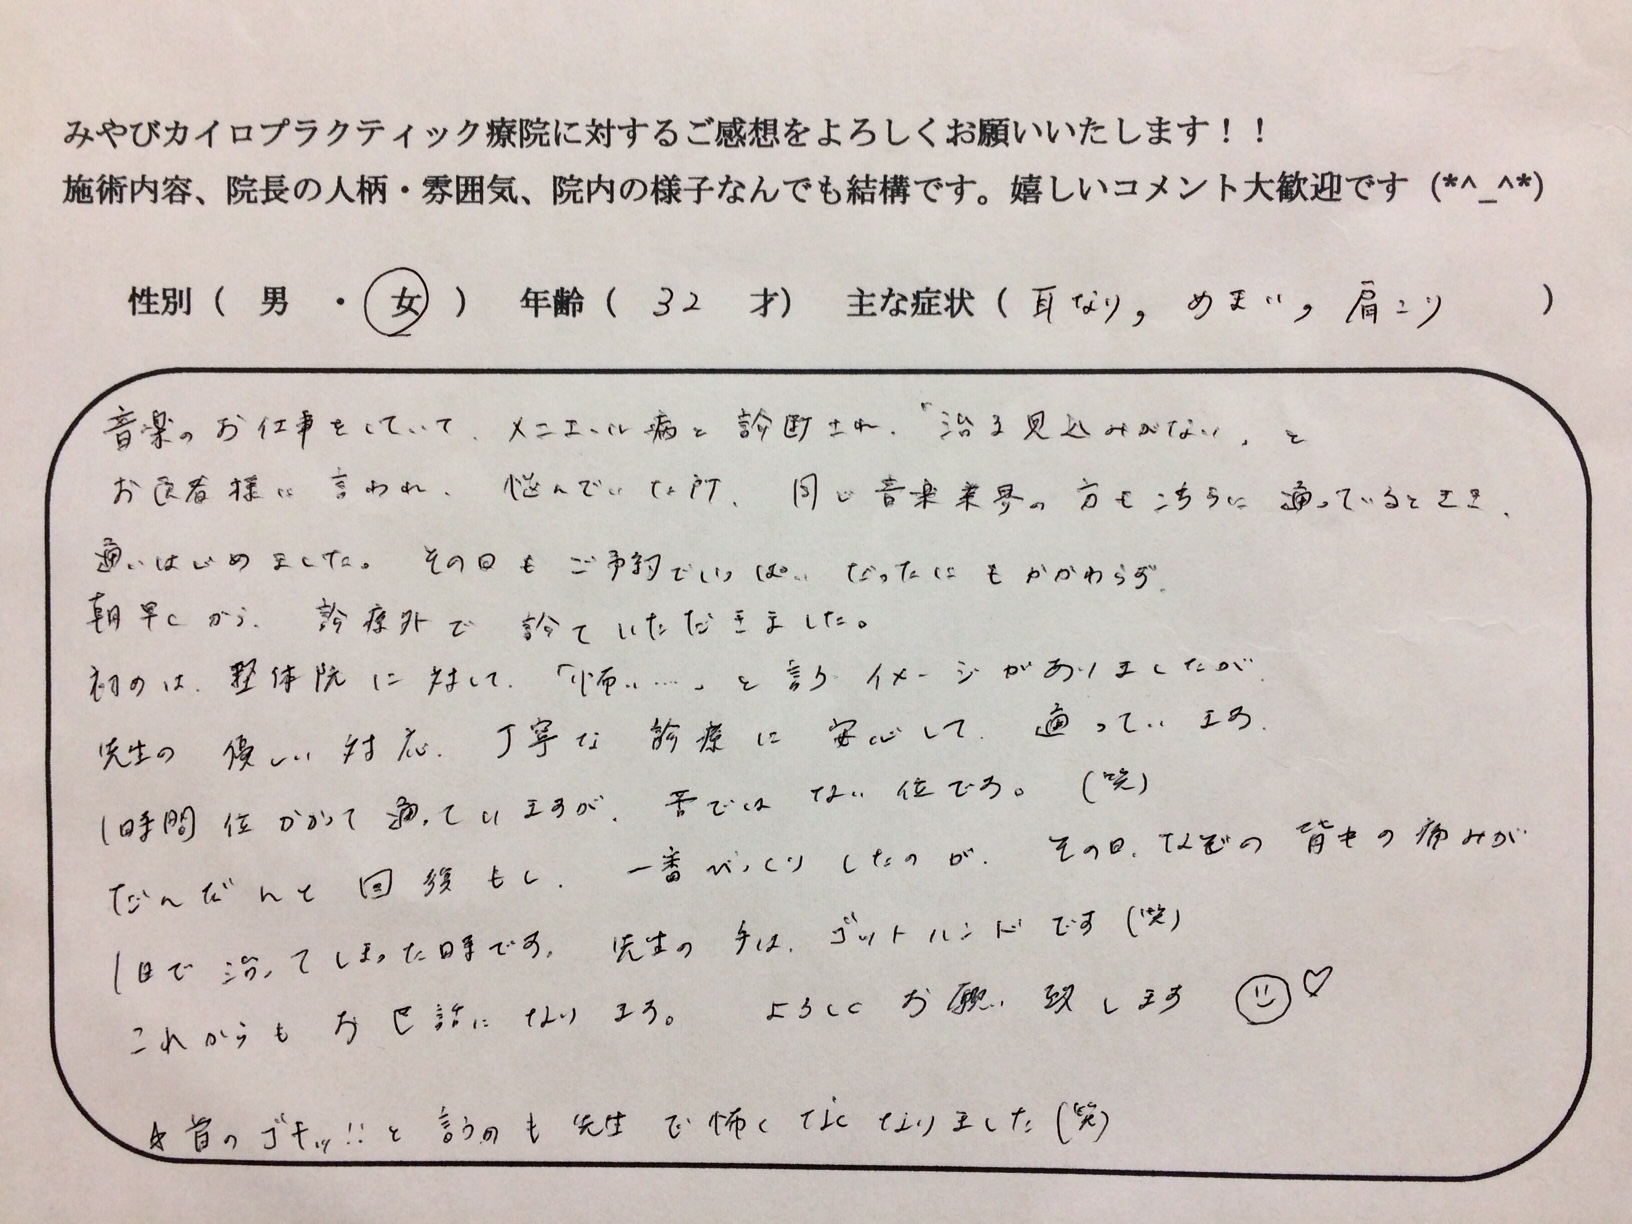 みやびカイロプラクティック療院に対するご感想をよろしくお願いいたします！！
施術内容、院長の人柄・雰囲気、院内の様子なんでも結構です。嬉しいコメント大歓迎です (*^_^*)
性別（ 男 ・ 女 ） 年齢（ 32 才） 主な症状（ 耳なり, めまい, 肩こり ）
音楽のお仕事をしていて、メニエール病と診断され、「治る見込みがない」と
お医者様に言われ、悩んでいた所、同じ音楽業界の方もこちらに通っているときき、
通いはじめました。その日もご予約でいっぱいだったにもかかわらず、
朝早くから、診療外で診ていただきました。
初めは、整体院に対して、「怖い……」と言うイメージがありましたが、
先生の優しい対応、丁寧な診療に安心して、通っています。
1時間位かかって通っていますが、苦ではない位です。(笑)
だんだんと回復もし、一番びっくりしたのが、その日、なぞの背中の痛みが
1日で治ってしまった時です。先生の手は、ゴットハンドです(笑)
これからもお世話になります。よろしくお願い致します ☺♡
☆首のゴキッ!!と言うのも先生で怖くなくなりました(笑)